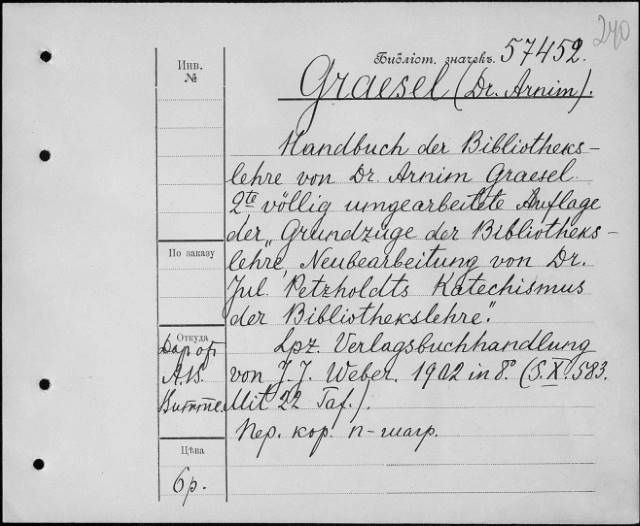 240
Библіот. значекъ. 57452.
Инв.
№
Graesel (Dr. Arnim).
Handbuch der Bibliotheks-
lehre von Dr. Arnim Graesel.
2te völlig umgearbeitete Auflage
der „Grundzüge der Bibliotheks-
lehre, Neubearbeitung von Dr.
Jul. Petzholdts Katechismus
der Bibliothekslehre".
По заказу
Lpz. Verlagsbuchhandlung
von J. J. Weber. 1902 in 8°. (S. X. 583.
Mit 22 Taf.).
Пер. кор. п-шагр.
Откуда
Дар от
А. В.
Витте.
Цѣна
6 р.